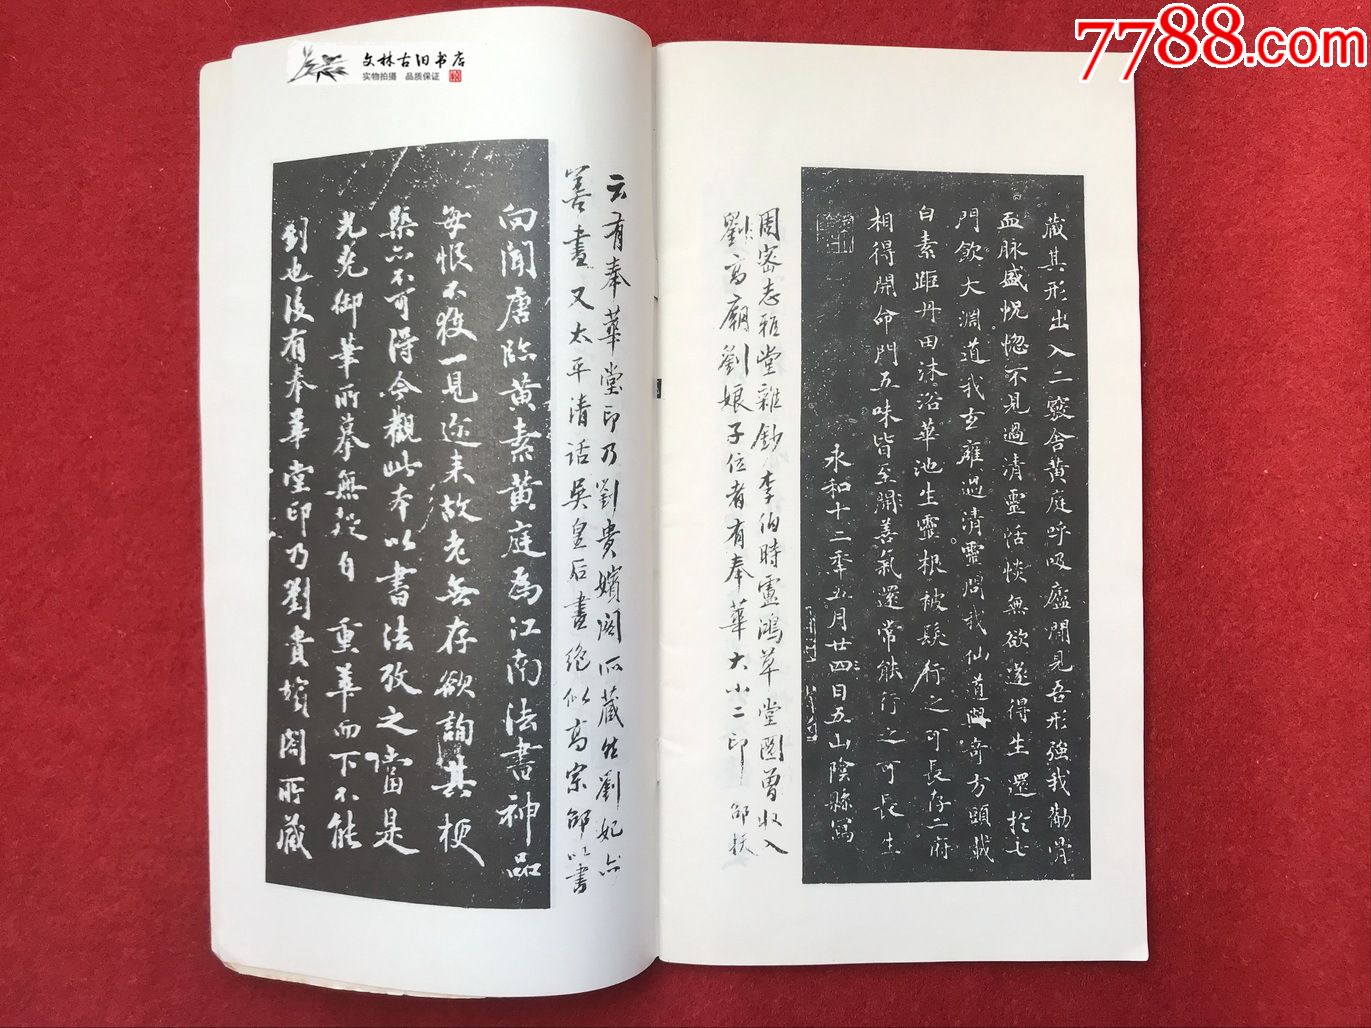 7788.com
文林古旧书店
实物拍摄 品质保证
藏其形出入二竅舍黄庭呼吸廬間見吾形強我勸骨
血脉盛怳惚不見過清靈恬惔無欲遂得生還於七
門飲大淵道我玄雍過清靈問我仙道與奇方頭戴
白素距丹田沐浴華池生靈根被髮行之可長存二府
相得開命門五味皆至開善氣還常能行之可長生
永和十二年五月廿四日五山陰縣寫
周密志雅堂雜鈔李伯時盧鴻草堂圖曾收入
劉高廟劉娘子位者有奉華大小二印
云有奉華堂印乃劉貴嬪閣所藏然劉妃亦
善畫又太平清話吳皇后畫絶似高宗御書
向聞唐臨黄素黄庭為江南法書神品
每恨不獲一見近来故老無存欲詢其梗
槩亦不可得今觀此本以書法攷之當是
光堯御筆所摹無疑自重華而下不能
到也後有奉華堂印乃劉貴嬪閣所藏